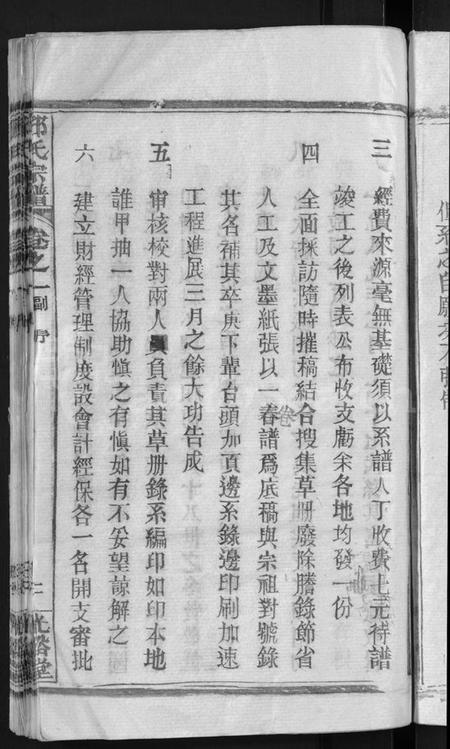 三 經費來源毫無基礎須以系譜人丁收費上元待譜
竣工之後列表公布收支虧余各地均發一份
四 全面採訪隨時摧稿結合搜集草册廢除謄錄節省
人工及文墨紙張以一春譜為底稿與宗祖對號錄
其名補其卒庚下輩台頭加頁邊系錄邊印刷加速
工程進展三月之餘大功告成
五 审核校對兩人員負責其草册錄系編印如印本地
誰甲抽一人協助慎之有慎如有不妥望諒解之
六 建立財經管理制度設會計經保各一名開支審批
邱氏宗譜 卷之一 副序
光裕堂